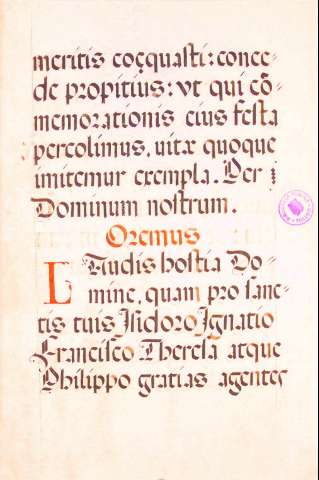 meritis coęquasti: conce-
de propitius: vt qui cō-
memorationis eius festa
percolimus, uitæ quoque
imitemur exempla. Per
Dominum nostrum.
Oremus
LAudis hostia Do-
mine, quam pro sanc-
tis tuis Isidoro Ignatio
Francisco Theresa atque
Philippo gratias agentes